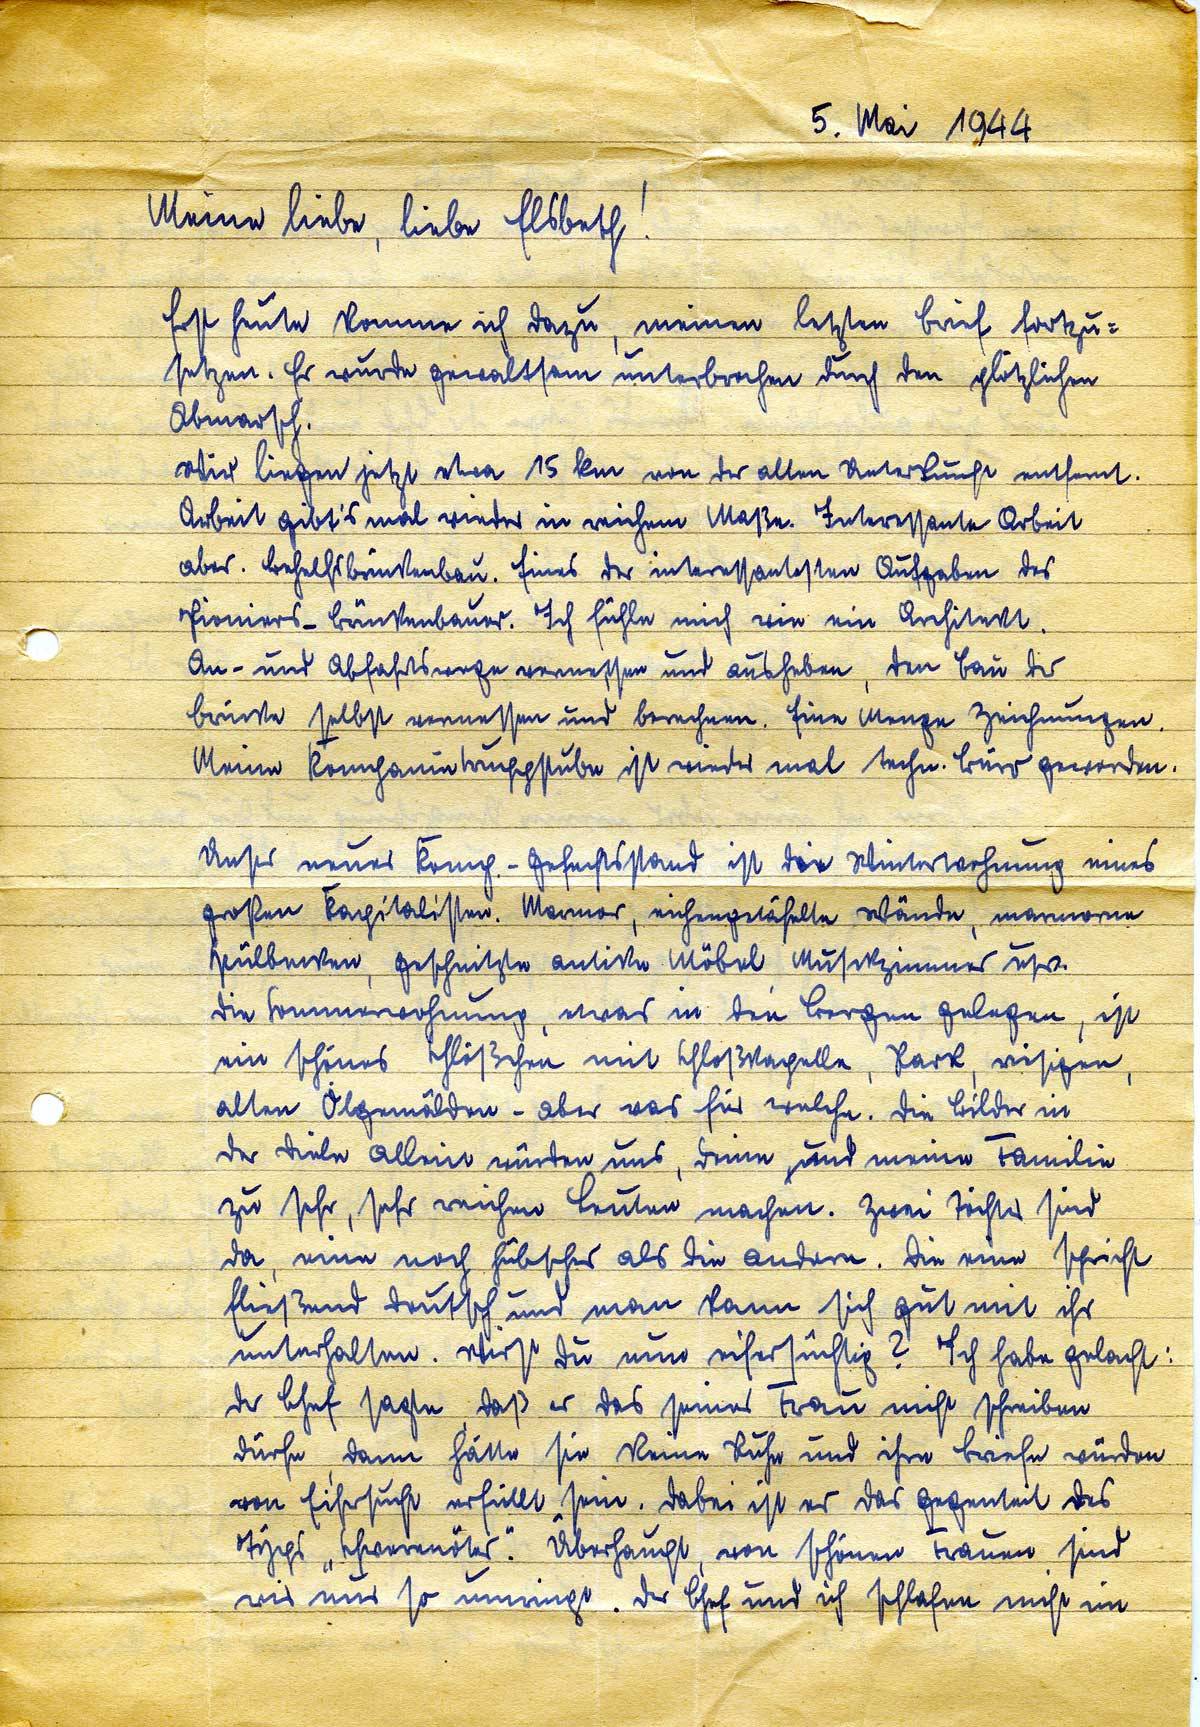 5. Mai 1944
Meine liebe, liebe Elsbeth!
Erst heute komme ich dazu, meinen letzten Brief fortzu=
setzen. Er wurde gewaltsam unterbrochen durch den plötzlichen
Abmarsch.
Wir liegen jetzt etwa 15 km von der alten Unterkunft entfernt.
Arbeit gibt's mal wieder in reichem Maße. Interessante Arbeit
aber. Behelfsbrückenbau. Eines der interessantesten Aufgaben des
Pioniers - Brückenbauer. Ich fühle mich wie ein Architekt.
An- und Abfahrtswege vermessen und ausheben, den Bau der
Brücke selbst vermessen und berechnen. Eine Menge Zeichnungen.
Meine Kompanietruppstube ist wieder mal techn. Büro geworden.
Unser neuer Komp.-Gefechtsstand ist die Winterwohnung eines
großen Kapitalisten. Marmor, eichengetäfelte Wände, marmorne
Spülbecken, geschnitzte antike Möbel Musikzimmer usw.
Die Sommerwohnung, etwas in den Bergen gelegen, ist
ein schönes Schlößchen mit Schloßkapelle, Park, riesigen,
alten Ölgemälden - aber was für welche. Die Bilder in
der Diele allein würden uns, deine und meine Familie
zu sehr, sehr reichen Leuten machen. Zwei Töchter sind
da, eine noch hübscher als die andere. Die eine spricht
fließend deutsch und man kann sich gut mit ihr
unterhalten. Wirst Du nun eifersüchtig? Ich habe gelacht:
der Chef sagte, daß er das seiner Frau nicht schreiben
dürfe, dann hätte sie keine Ruhe und ihre Briefe würden
von Eifersucht erfüllt sein. Dabei ist er das Gegenteil des
Typs „Schwerenöter". Überhaupt, von schönen Frauen sind
wir nur so umringt. Der Chef und ich schlafen nicht im